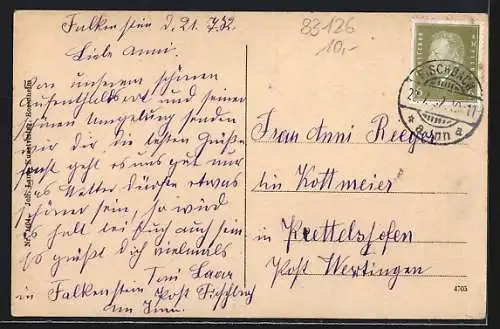 Falkenstein d. 21. 7. 32.
Liebe Anni.
Von unserem schönen
Aufenthaltsort und seiner
schönen Umgebung senden
wir dir die besten Grüße
sonst geht es uns gut nur
es Wetter dürfte etwas
schöner sein, so wird
es halt bei Euch auch sein
es grüßt dich vielmals
Toni
in Falkenstein Post Fischbach
am Inn.
83126
10,-
Frau Anni Reeger
bei Kottmeier
in Rettelshofen
Post Wertingen
FISCHBACH
a. Inn a
4705